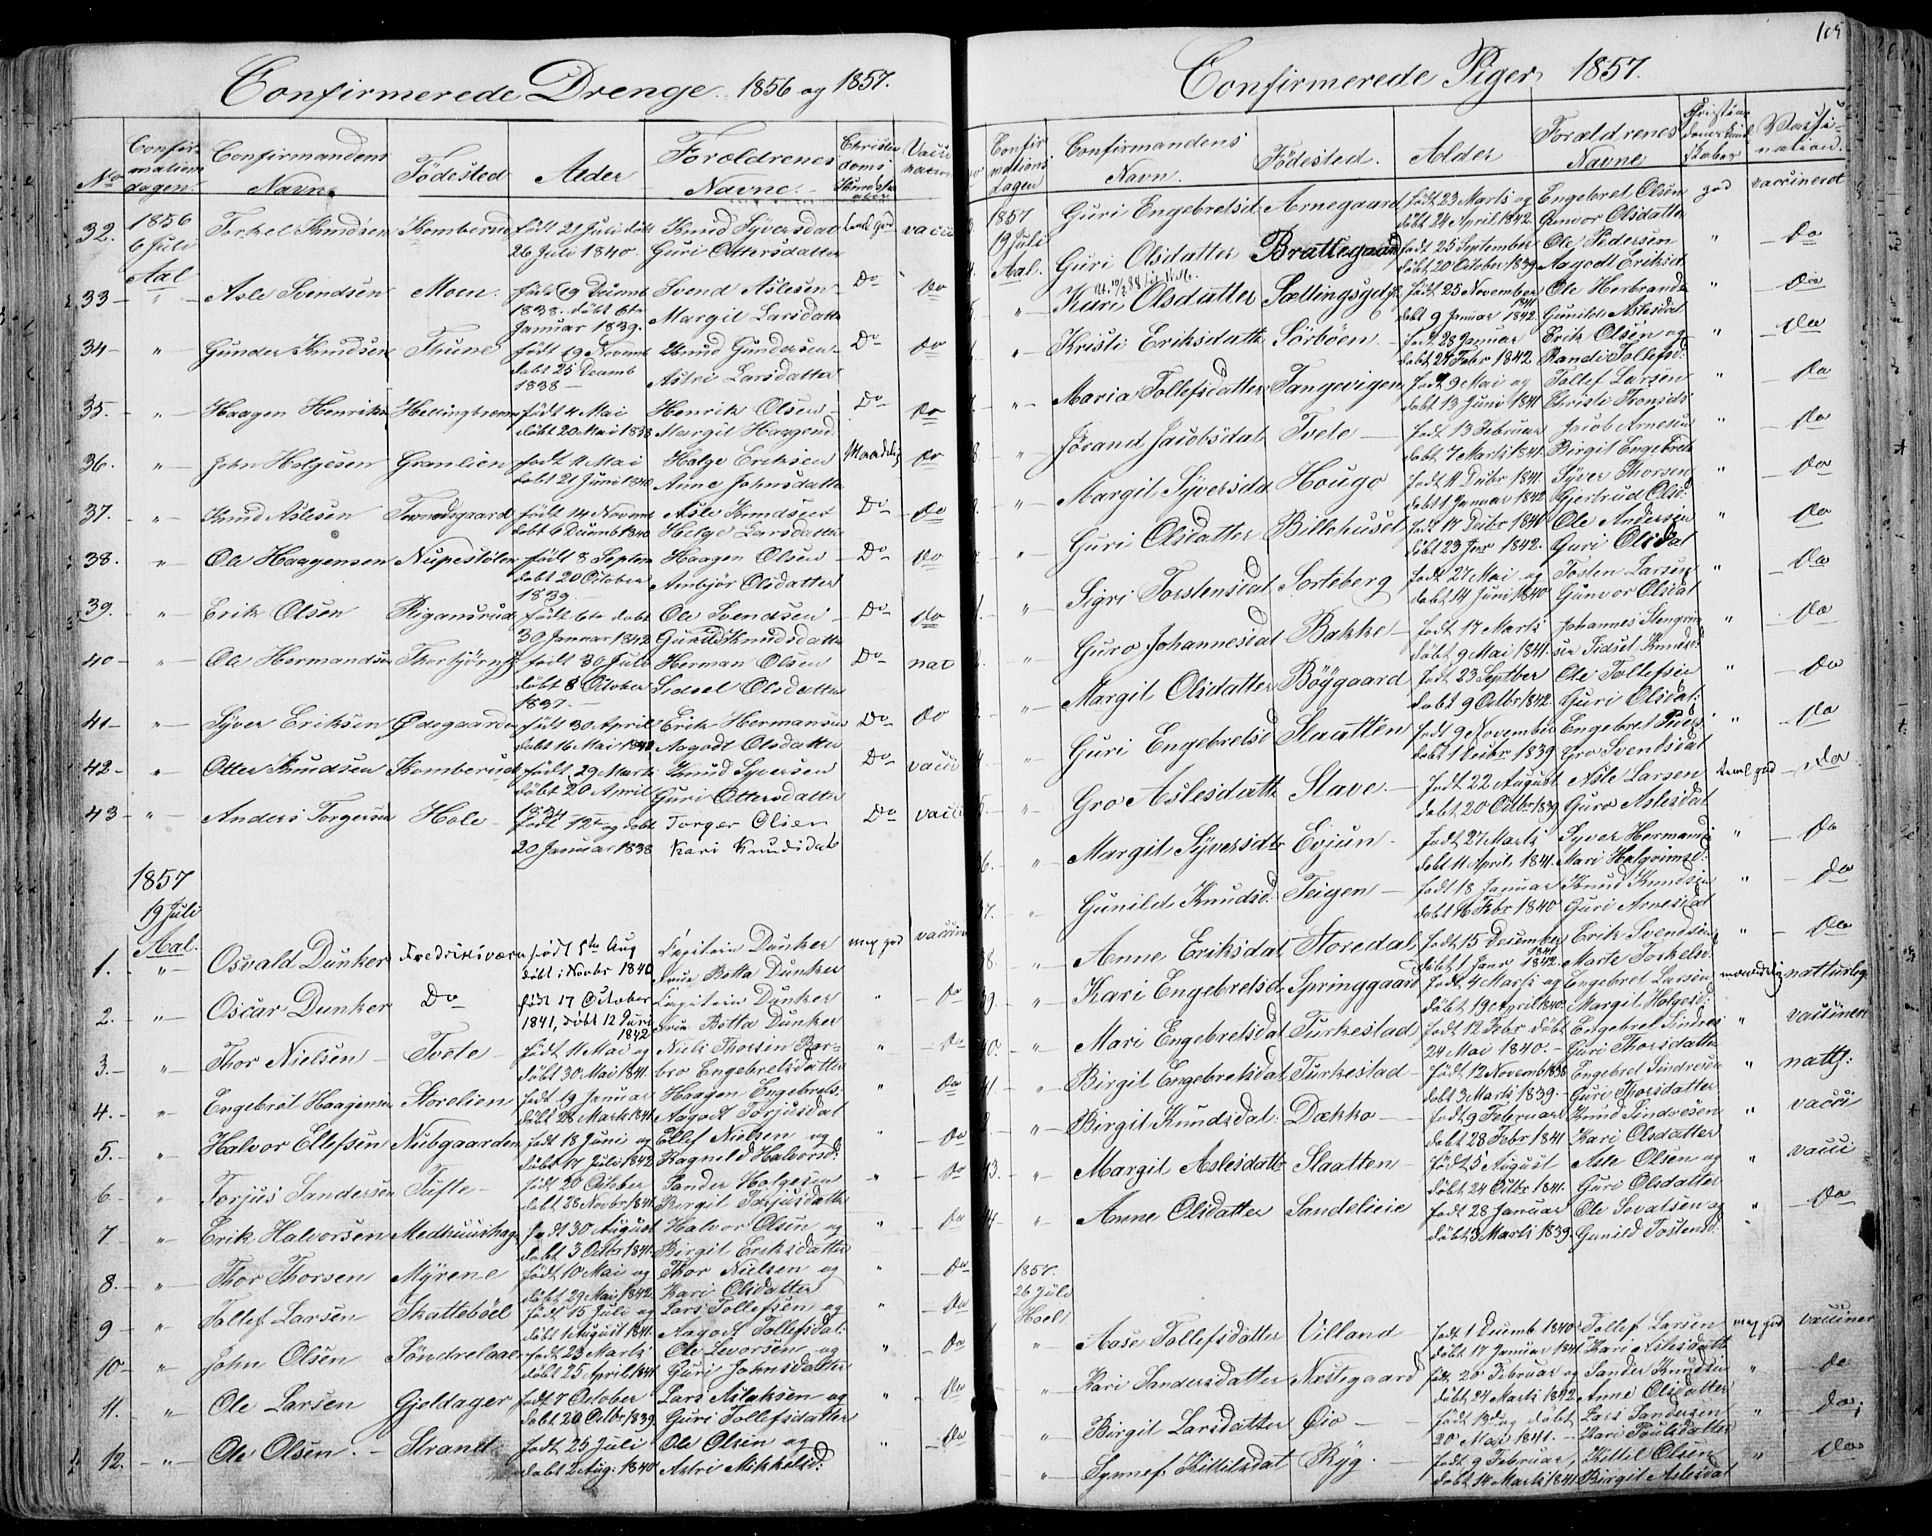 Confirmerede Drenge. 1856 og 1857.
No Confirmationsdagen. Confirmandens Navn. Fødested Alder Forældrenes Navne. Christendoms Kundskaber Vaccination
32. 1856 6 Juli Aal Torkel Knudsen Komberud født 21 Juli døbt Knud Syversdal temlig god vacci
26 Juli 1840. Guri Ottersdatter
33 " Asle Svendsen Moen. født 19 Decemb Svend Aslesen Do Do
1838. døbt 6te Margit Larsdatter
Januar 1839.
34 " Gunder Knudsen Thune født 19 Novemb Knud Gundersen Do Do
døbt 25 Decemb Astri Larsdatter
1838
35. " Haagen Henriks Hellingbremo født 4 Mai Henrik Olsen Do Do
døbt 20 Mai 1838 Margit Haagend
36. " John Helgesen Granlien født 11 Mai Helge Eriksen Maadelig Do
døbt 21 Juni 1840 Anne Johnsdatter
37. " Knud Aslesen Tormodsgaard født 14 Novemb Asle Knudsen Do Do
døbt 6 Decemb 1840 Helge Larsdatter
38. " Ole Haagensen Nupestølen født 8 Septem Haagen Olsen Do Do
døbt 20 October Ambjør Olsdatter
1839.
39. " Erik Olsen Rigansrud født 6te døbt Ole Svendsen Do Do
30 Januar 1842 Gunild Knudsdatter
40 " Ole Hermandsen Thorbjørng født 30 Juli Herman Olsen Do nat
døbt 8 October Sidsel Olsdatter
1837.
41 " Syver Eriksen Ødegaarden født 30 April Erik Hermansen Do Do
døbt 16 Mai 1842 Aagodt Olsdatter
42 " Otter Knudsen Komberud født 29 Marts Knud Syversen Do vacci
døbt 20 April Guri Ottersdatter
1834
43 " Anders Torgersen Hole født 12te og døbt Torger Olsen Do vacci
20 Januar 1838 Kari Knudsdat
1857
19 Juli
Aal.
1. " Osvald Dunker Fredriksværn født 8de Aug Capitein Dunker meg god vaccine
døbt i Novbr 1840 Frue Botta Dunker
2. " Oscar Dunker Do født 17 October Capitein Dunker " Do
1841, døbt 12 Juni Frue Botta Dunker
1842
3. " Thor Nielsen Tvete født 11 Mai og Niels Thorsen Bar- " Do
døbt 30 Mai 1841. bro Engebretsdatter
4. " Engebret Haagensen Storelien født 19 Januar Haagen Engebrets. " Do
døbt 28 Marts 1841 Aagodt Torjusdat
5. " Halvor Ellefsen Nubgaarden født 18 Juni og Ellef Nielsen og " Do
døbt 17 Juli 1842 Ragnild Halvorsd:
6 " Torjus Sandersen Tufte født 20 October Sander Helgesen " Do
døbt 28 Novbr 1841. Birgit Torjusdatter
7 " Erik Halvorsen Medhuushage født 30 August Halvor Olsen og " Do
døbt 3 Octbr 1841. Birgit Eriksdatter
8 " Thor Thorsen Myrene født 10 Mai og Thor Nielsen og " Do
døbt 29 Mai 1842. Kari Olsdatter
9 " Tollef Larsen Skattebøel født 15 Juli og Lars Tollefsen og " Do
døbt 1 August 1841. Aagodt Tollefsdat:
10 " John Olsen Søndrelaae født 23 Marts Ole Levorsen " Do
døbt 25 April 1841 Guri Johnsdatter
11. " Ole Larsen Gjeldager født 7 October Lars Aslaksen og " Do
døbt 20 Octbr 1839. Guri Tollefsdatter
12. " Ole Olsen. Strand født 25 Juli Ole Olsen og " Do
døbt 2 Aug. 1840 Astri Mikkelsd:
105
Confirmerede Piger 1857.
Confirmationsdagen Confirmandens Navn. Fødested. Alder Forældrenes Navne Christendomskundskaber Vaccination.
1857 19 Juli Aal. Guri Engebretsd Arnegaard født 23 Marts og Engebret Olsen god vaccineret
døbt 24 April 1842. Gunvor Olsdatter
Guri Olsdatter Brattegaard født 25 September Ole Pedersen " Do
døbt 20 October 1839 Aagodt Eriksd
" Kari Olsdatter Sællingsgd født 25 November Ole Herbrands " Do
1841
døbt 9 Januar 1842. Gunild Aslesdat
" Kristi Eriksdatt Sørbøen født 28 Januar Erik Olsen og " Do
døbt 27 Febr 1842 Randi Tollefsd:
" Maria Tollefsdatter Tangevigen født 9 Mai og Tollef Larsen " Do
døbt 13 Juni 1841 Christi Tronsd:
8 " Jørand Jacobsdat Tvete født 13 Februar Jacob Arnesen " Do
døbt 7 Marts 1841. Birgit Engebrets
" Margit Syversda Hougo født 11 Debr 1841. Syver Thorsen " Do
døbt 1 Januar 1842 Gjertrud Olsd:
" Guri Olsdatter Billehuset født 17 Debr 1841 Ole Andersen " Do
døbt 23 Jan 1842. Guri Olsdat
" Sigri Torstensdat Sorteberg født 27 Mai og Tosten Larsen " Do
døbt 14 Juni 1840 Gunvor Olsdat
" Guro Johannesdat Bakke født 17 Marts Johannes Stengrim " Do
døbt 9 Mai 1841. sen Sidsel Knudsd:
Margit Olsdatter Bøygaard født 23 Septber Ole Tollefsen " Do
døbt 9 Octbr 1842. Guri Olsdat:
" Guri Engebretsd Slaatten født 9 November Engebret Peders " Do
døbt 1 Decbr 1839 Gro Svendsdat
" Gro Aslesdatt Slave. født 22 August Asle Larsen temlgod Do
døbt 20 Octbr 1839 Guro Aslesdat
36. " Margit Syversdtr Evjun født 27 Marts Syver Hermands " Do
døbt 11 April 1841. Mari Halgrimsd:
37. " Gunild Knudsd. Teigen født 18 Januar Knud Knudsen " Do
døbt 16 Febr 1840 Guri Arnesdat
38. " Anne Eriksdat Storedal født 15 December Erik Svendsen " Do
1841
døbt 1 Janr 1842. Marte Torkelsd.
39. " Kari Engebretsd Springgaard født 4 Marts og Engebret Larsen maadelig natturlig
døbt 19 April 1840. Margit Helgesd:
40. " Mari Engebretsdat Turkestad født 12 Febr døbt Engebret Sindres " vaccinen
24 Mai 1840. Guri Thorsdatter
41. " Birgit Engebretsdat Turkestad født 12 Novemb 1838 Engebret Sindresen " nattl:
døbt 3 Marts 1839. Guri Thorsdatter
" Birgit Knudsdat: Dækko født 9 Februar Knud Sindresen " vacci
døbt 28 Febr 1841 Kari Olsdatter
43. " Margit Aslesdatt Slaatten født 5 August Asle Olsen og " vacci
døbt 24 Octbr 1841. Guri Olsdatter
" Anne Olsdatter Sandelieie født 28 Januar Ole Sevatsen og " Do
døbt 3 Marts 1839. Gunild Tostensd.
1857.
26 Juli
Hoel
" Aase Tollefsdatter Villand født 1 Decemb 1840 Tollef Larsen meg god vacciner
døbt 17 Januar 1841 Kari Aslesdatte
" Kari Sandersdatter Nestegaard født 20 Februar og Sander Knudsen " Do
døbt 24 Marts 1842 Anne Olsdatter
" Birgit Larsdatter Øio født 13de og døbt Lars Sandersen " Do;
20 Mai 1841. Kari Poulsdatter
" Synnef Kittilsdat Ryg. født 9 Februar, Kittil Olsen " Do
døbt 14 Marts 1841 Birgit Aslesdat